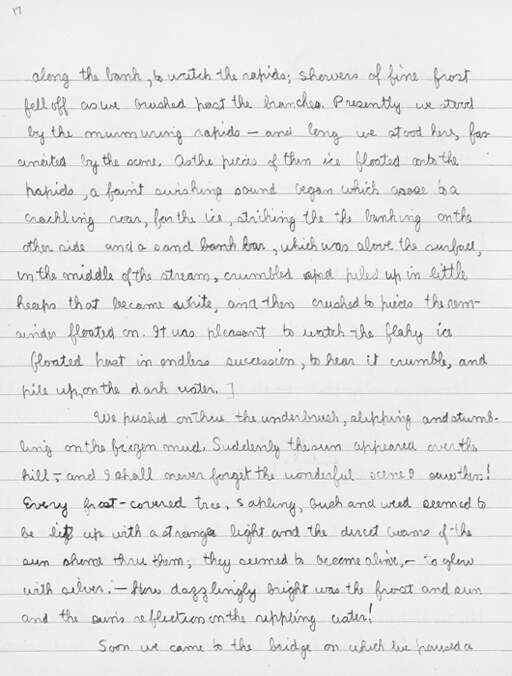 17
along the bank, to watch the rapids; showers of fine frost
fell off as we brushed past the branches. Presently we stood
by the murmuring rapids – and long we stood here, fas-
cinated by the scene. As the pieces of thin ice floated onto the
rapids, a faint swishing sound began which rose to a
crackling roar, for the ice, striking the the banking on the
other side and a sand bank bar, which was above the surface,
in the middle of the stream, crumbled and piled up in little
heaps that became white, and then crushed to pieces the rem-
ainder floated on. It was pleasant to watch the flaky ice
floated past in endless succession, to hear it crumble, and
pile up, on the dark water. ]
We pushed on thru the underbrush, slipping and stumb-
ling on the frozen mud. Suddenly the sun appeared over the
hill, – and I shall never forget the wonderful scene I saw then!
Every frost-covered tree, sapling, bush and weed seemed to
be lit up with a strange light and the direct beams of the
sun shone thru them; they seemed to become alive, – to glow
with silver. – How dazzlingly bright was the frost and sun
and the sun's reflection on the rippling water!
Soon we came to the bridge on which we paused a